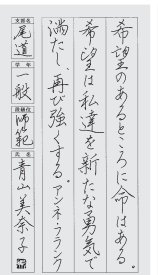 希望のあるところに命はある。
希望は私達を新たな勇気で
満たし、再び強くする。アンネ・フランク
支部名 尾道
学年 一般
段級位 師範
氏名 青山美奈子